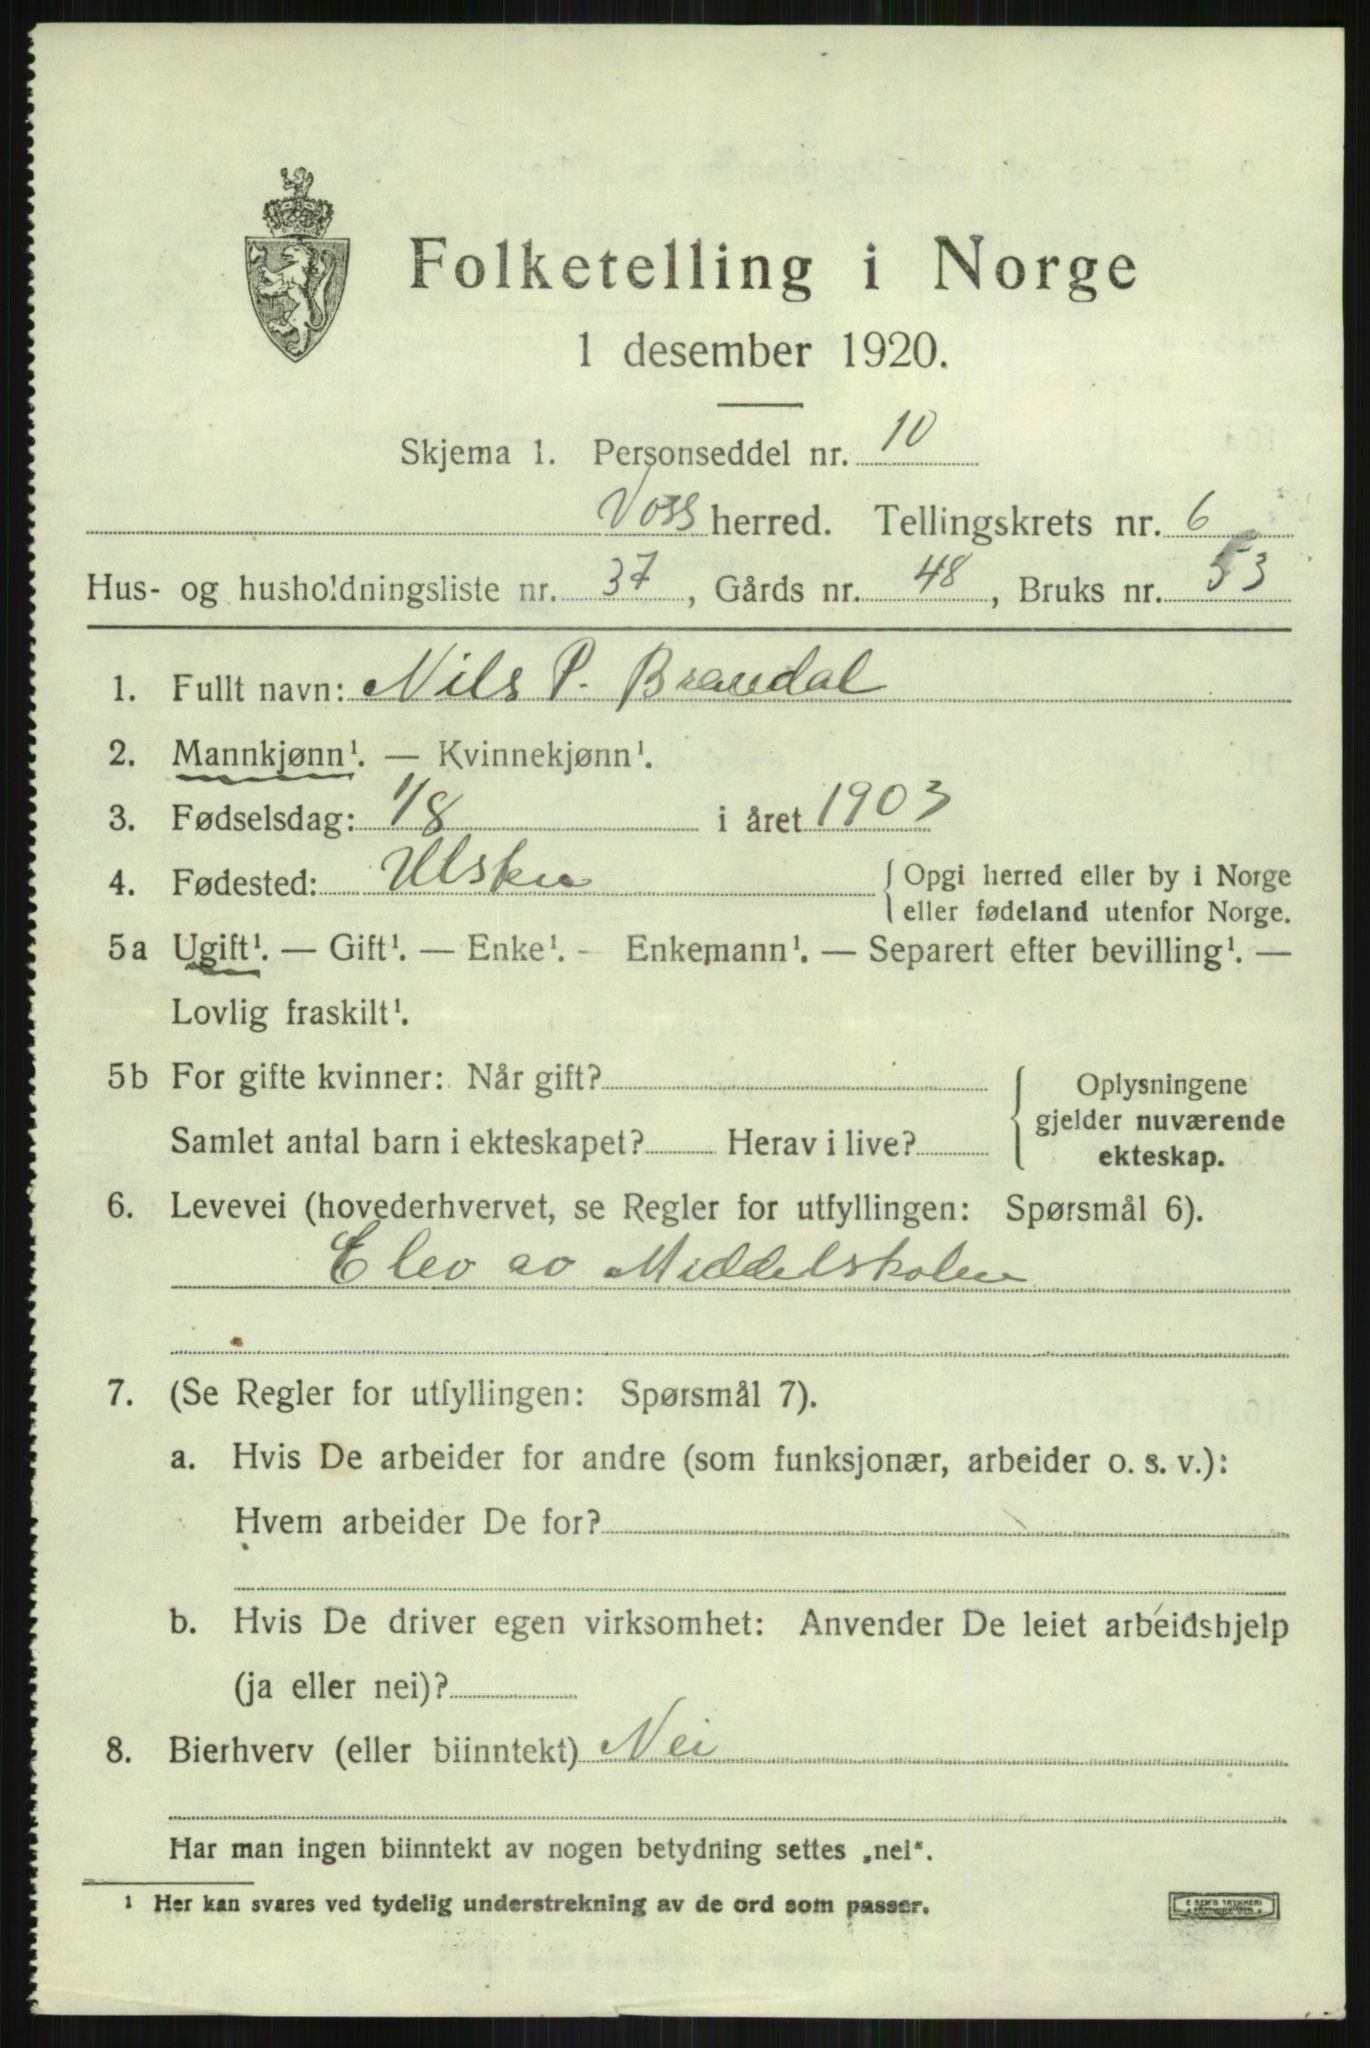 Folketelling i Norge
1 desember 1920.
Skjema 1. Personseddel nr. 10
Voss herred. Tellingskrets nr. 6
Hus- og husholdningsliste nr. 37, Gårds nr. 48, Bruks nr. 53
1. Fullt navn: Nils P. Brandal
2. Mannkjønn¹. — Kvinnekjønn¹.
3. Fødselsdag: 1/8 i året 1903
4. Fødested: { Opgi herred eller by i Norge
eller fødeland utenfor Norge.
5a Ugift¹. — Gift¹. — Enke¹. - Enkemann¹. — Separert efter bevilling¹. —
Lovlig fraskilt¹.
5b For gifte kvinner: Når gift?
Samlet antal barn i ekteskapet? Herav i live?
{ Oplysningene
gjelder nuværende
ekteskap.
6. Levevei (hovederhvervet, se Regler for utfyllingen: Spørsmål 6).
Elev av Middelskolen
7. (Se Regler for utfyllingen: Spørsmål 7).
a. Hvis De arbeider for andre (som funksjonær, arbeider o. s. v.):
Hvem arbeider De for?
b. Hvis De driver egen virksomhet: Anvender De leiet arbeidshjelp
(ja eller nei)?
8. Bierhverv (eller biinntekt) Nei
Har man ingen biinntekt av nogen betydning settes „nei“.
¹ Her kan svares ved tydelig understrekning av de ord som passer.